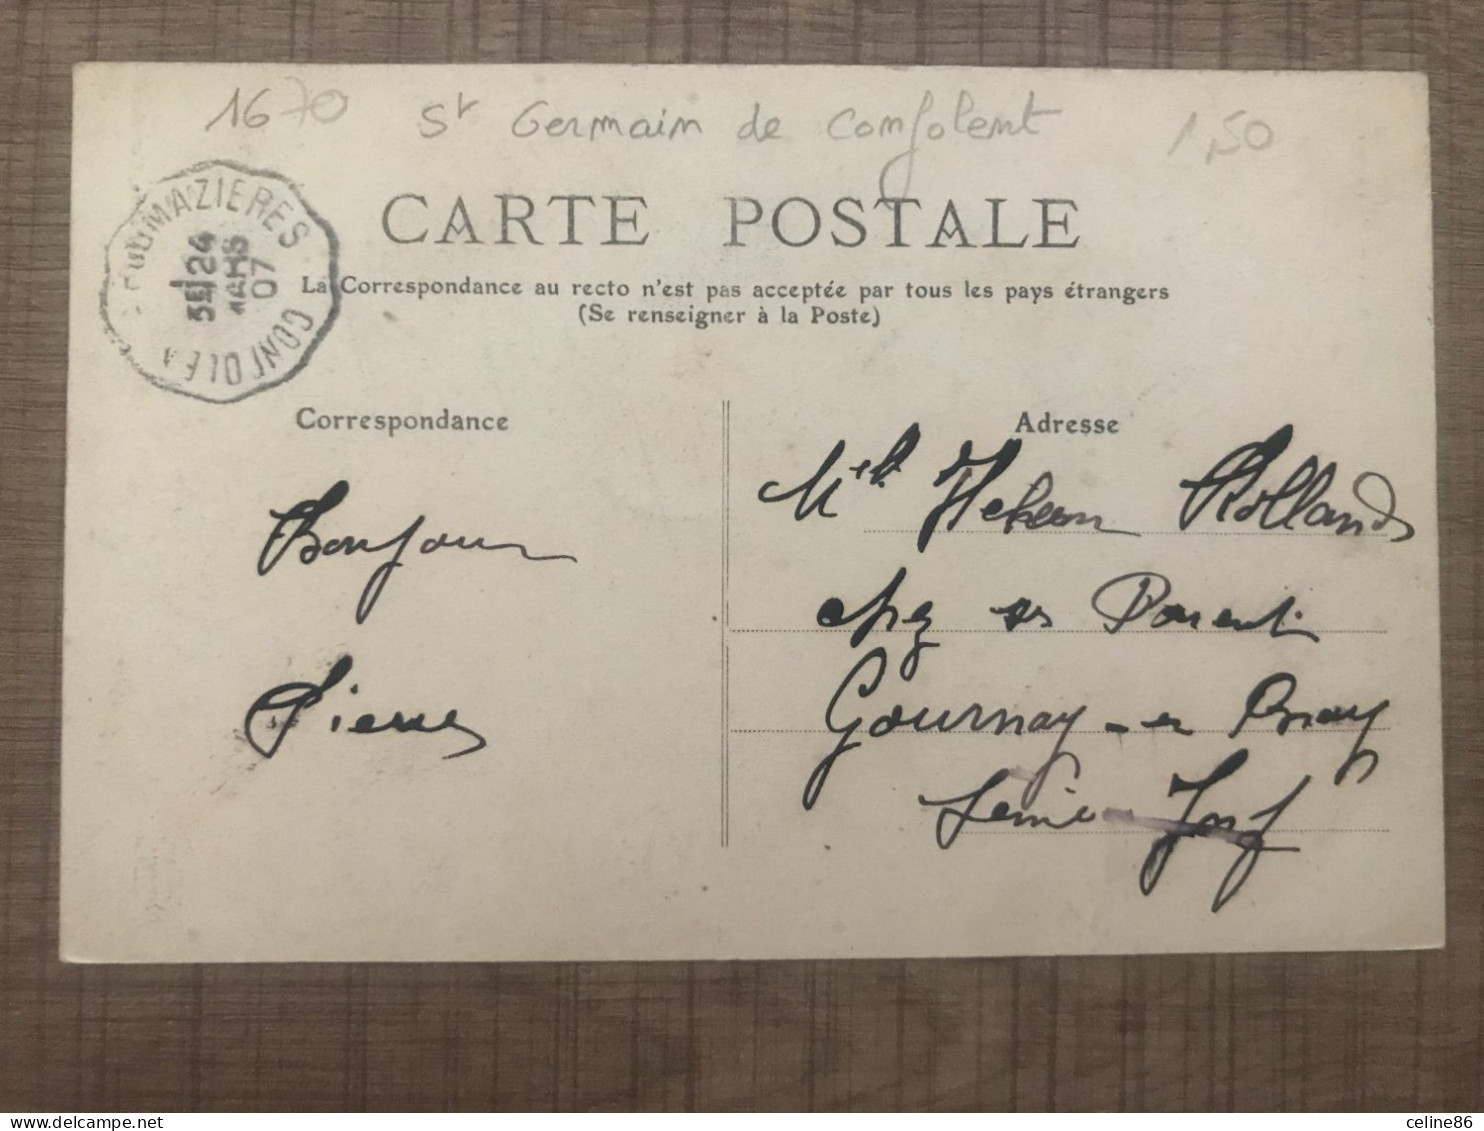 1670 St Germain de Confolent 1,50
CARTE POSTALE
La Correspondance au recto n'est pas acceptée par tous les pays étrangers
(Se renseigner à la Poste)
ROUMAZIERES
CONFOLE
5E 24
MARS
07
Correspondance
Adresse
Bonjour
Pierre
Melle Rolland
chez ses Parents
Gournay-en Bray
Seine Inf
celine86